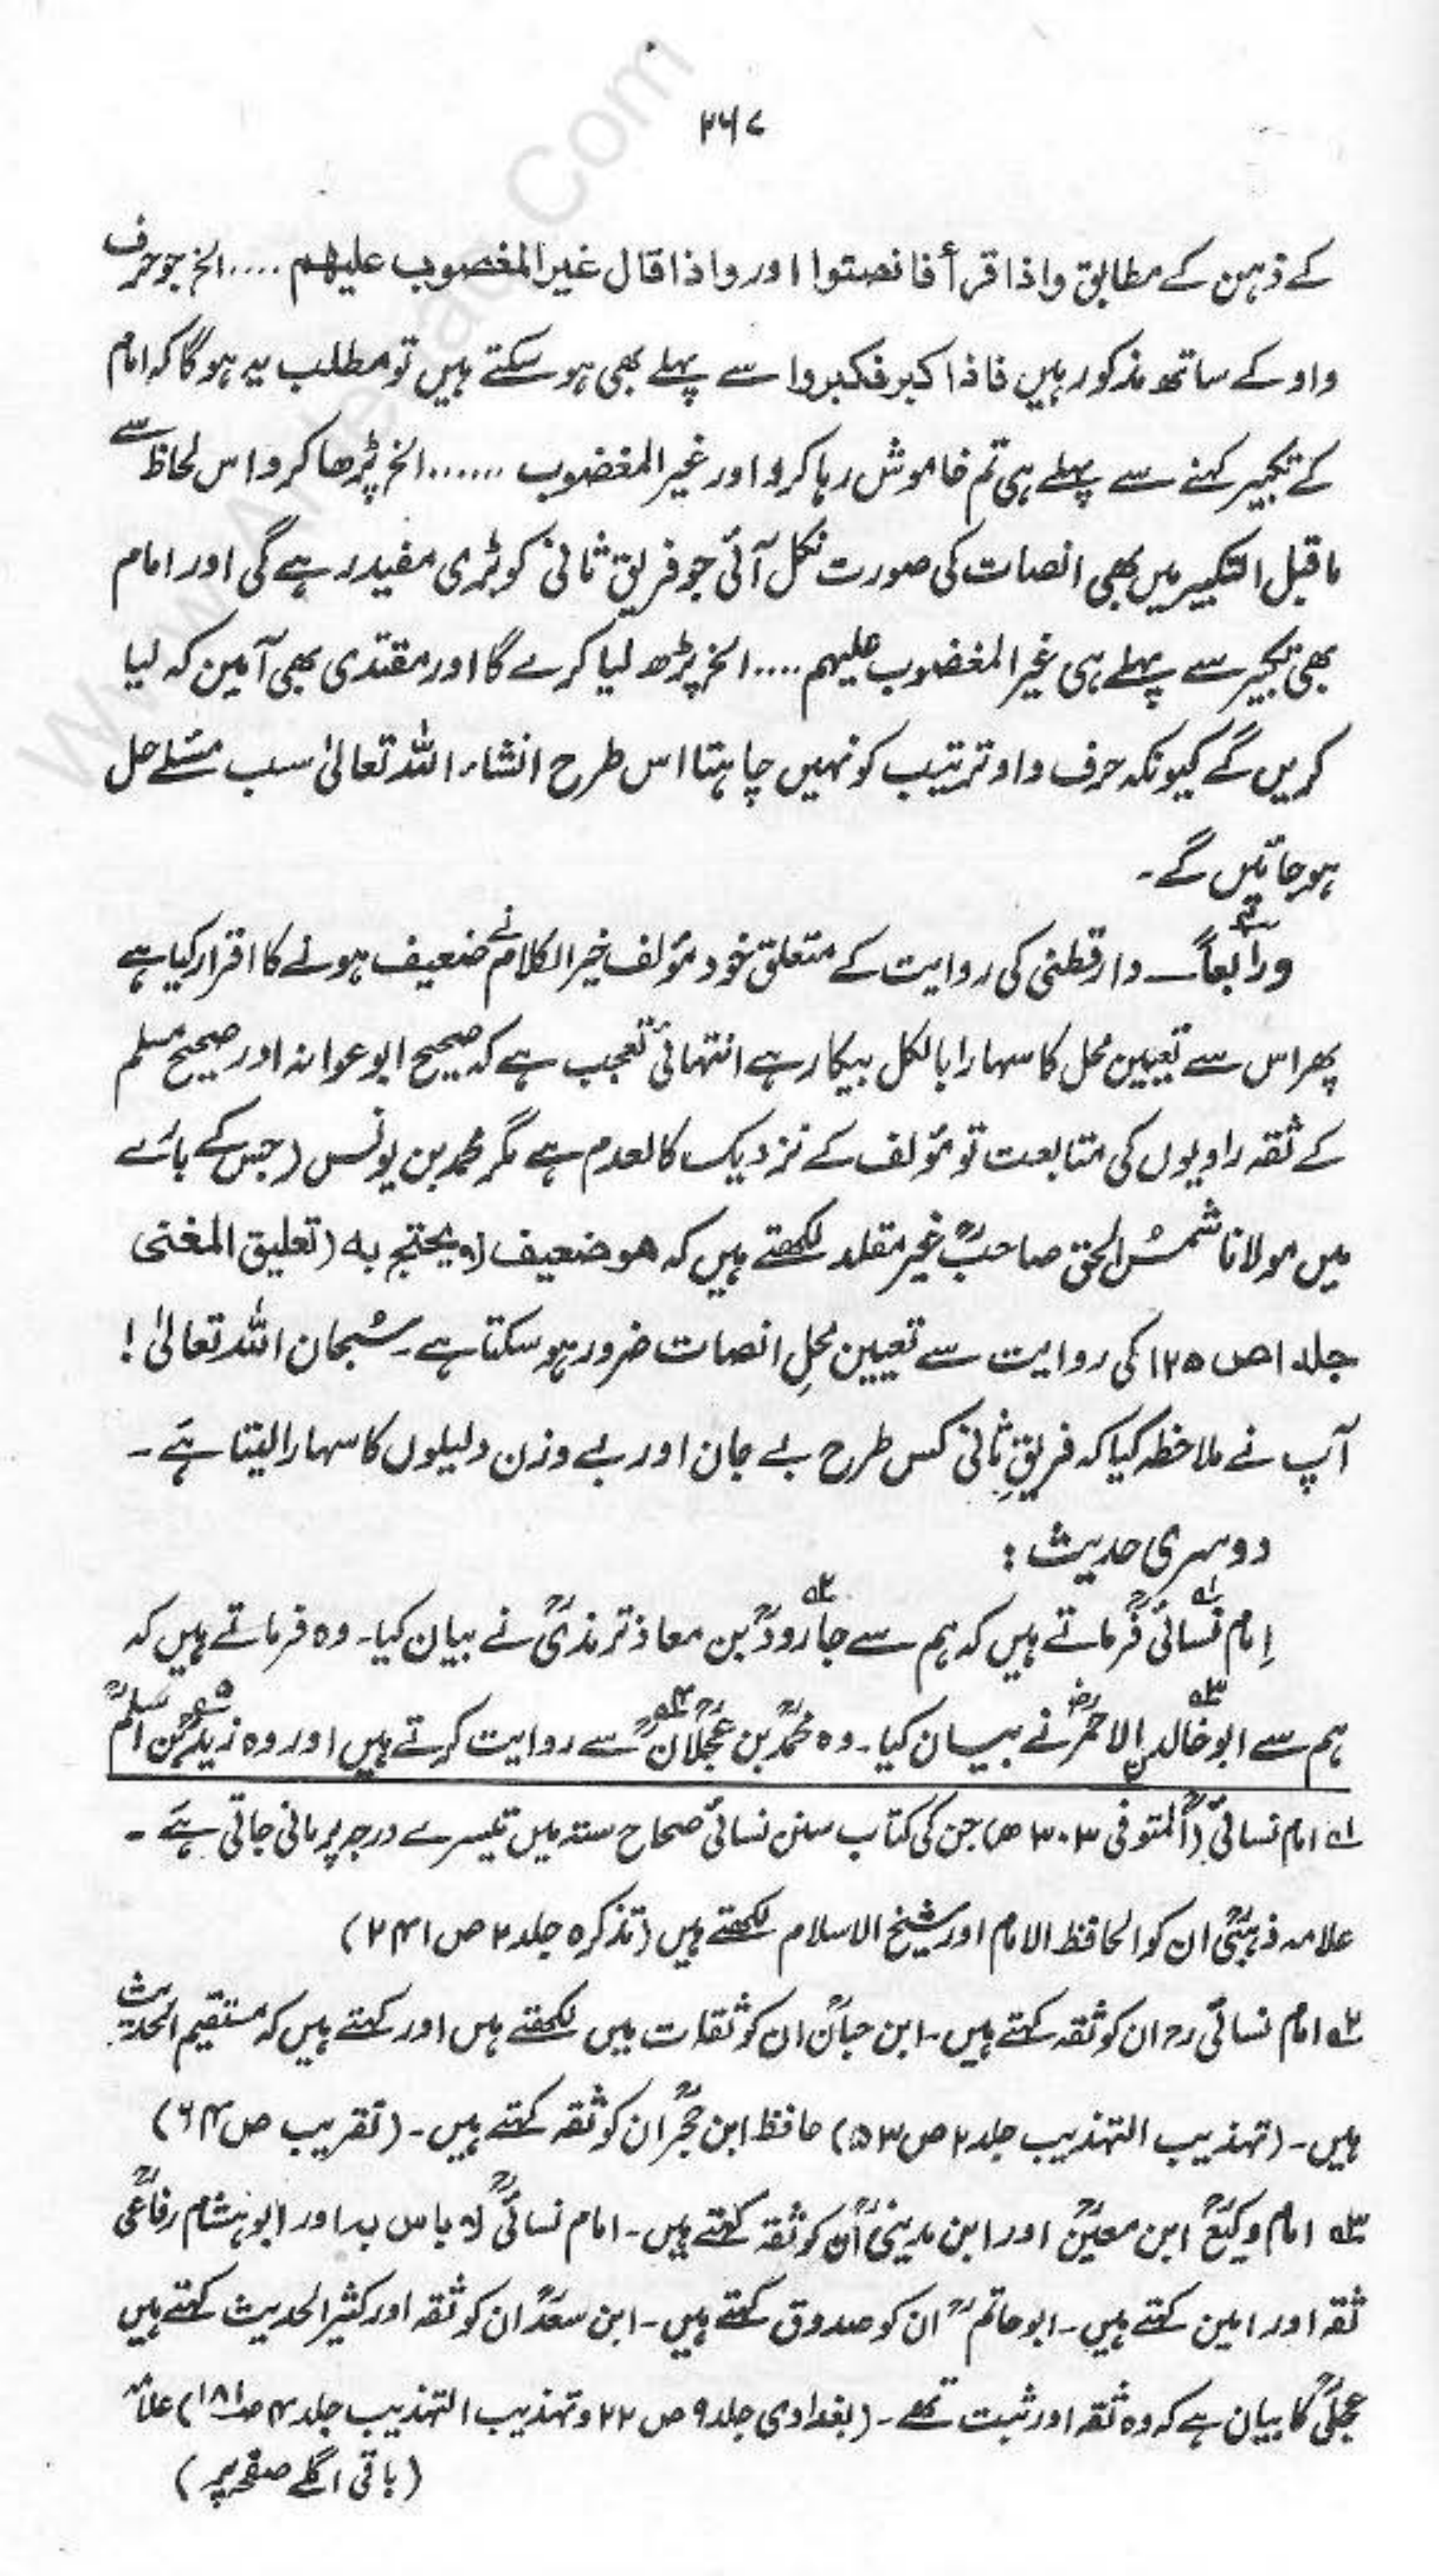 ۲۶۷
کے ذہن کے مطابق واذا قرأ فانصتوا اور واذا قال غیر المغضوب علیھم ....الخ جو حرف
واو کے ساتھ مذکور ہیں فاذا کبر فکبروا سے پہلے بھی ہو سکتے ہیں تو مطلب یہ ہو گا کہ امام
کے تکبیر کہنے سے پہلے ہی تم خاموش رہا کرو اور غیر المغضوب .......الخ پڑھا کرو اس لحاظ سے
ماقبل التکبیر میں بھی انصات کی صورت نکل آئی جو فریق ثانی کو بڑی مفید رہے گی اور امام
بھی تکبیر سے پہلے ہی غیر المغضوب علیہم ....الخ پڑھ لیا کرے گا اور مقتدی بھی آمین کہ لیا
کریں گے کیونکہ حرف واو ترتیب کو نہیں چاہتا اس طرح انشاء اللہ تعالیٰ سب مسئلے حل
ہو جائیں گے۔
ورابعاً۔ دارقطنی کی روایت کے متعلق خود مؤلف خیر الکلام نے ضعیف ہونے کا اقرار کیا ہے
پھر اس سے تعیین محل کا سہارا بالکل بیکار ہے انتہائی تعجب ہے کہ صحیح ابوعوانہ اور صحیح مسلم
کے ثقہ راویوں کی متابعت تو مؤلف کے نزدیک کالعدم ہے مگر محمد بن یونس (جس کے بارے
میں مولانا شمس الحق صاحبؒ غیر مقلد لکھتے ہیں کہ ھو ضعیف لا یحتج بہ (تعلیق المغنی
جلد ۱ ص ۱۲۵ کی روایت سے تعیین محلِ انصات ضرور ہو سکتا ہے۔ سُبحان اللہ تعالیٰ !
آپ نے ملاحظہ کیا کہ فریقِ ثانی کس طرح بے جان اور بے وزن دلیلوں کا سہارا لیتا ہے۔
دوسری حدیث :
اِمام نسائیؒ۱ فرماتے ہیں کہ ہم سے جارودؒ۲ بن معاذ ترمذیؒ نے بیان کیا۔ وہ فرماتے ہیں کہ
ہم سے ابو خالدن الاحمرؒ۳ نے بیان کیا۔ وہ محمدؒ بن عجلانؒ۴ سے روایت کرتے ہیں اور وہ زیدؒ۵ بن اسلمؒ
۱ امام نسائیؒ (المتوفی ۳۰۳ھ) جن کی کتاب سنن نسائی صحاح ستہ میں تیسرے درجہ پر مانی جاتی ہے۔
علامہ ذہبیؒ ان کو الحافظ الامام اور شیخ الاسلام لکھتے ہیں (تذکرہ جلد ۲ ص ۲۴۱)
۲ امام نسائی رح ان کو ثقہ کہتے ہیں۔ ابن حبانؒ ان کو ثقات میں لکھتے ہیں اور کہتے ہیں کہ مستقیم الحدیث
ہیں۔ (تہذیب التہذیب جلد ۲ ص ۵۳) حافظ ابن حجرؒ ان کو ثقہ کہتے ہیں۔ (تقریب ص ۶۴)
۳ امام وکیعؒ ابن معینؒ اور ابن مدینیؒ اُن کو ثقہ کہتے ہیں۔ امام نسائیؒ لا باس بہ اور ابو ہشام رفاعیؒ
ثقہ اور امین کہتے ہیں۔ ابو حاتمؒ ان کو صدوق کہتے ہیں۔ ابن سعدؒ ان کو ثقہ اور کثیر الحدیث کہتے ہیں
عجلیؒ کا بیان ہے کہ وہ ثقہ اور ثبت تھے۔ (بغدادی جلد ۹ ص ۲۲ و تہذیب التہذیب جلد ۴ ص ۱۸۱) علامہ
(باقی اگلے صفحہ پر)